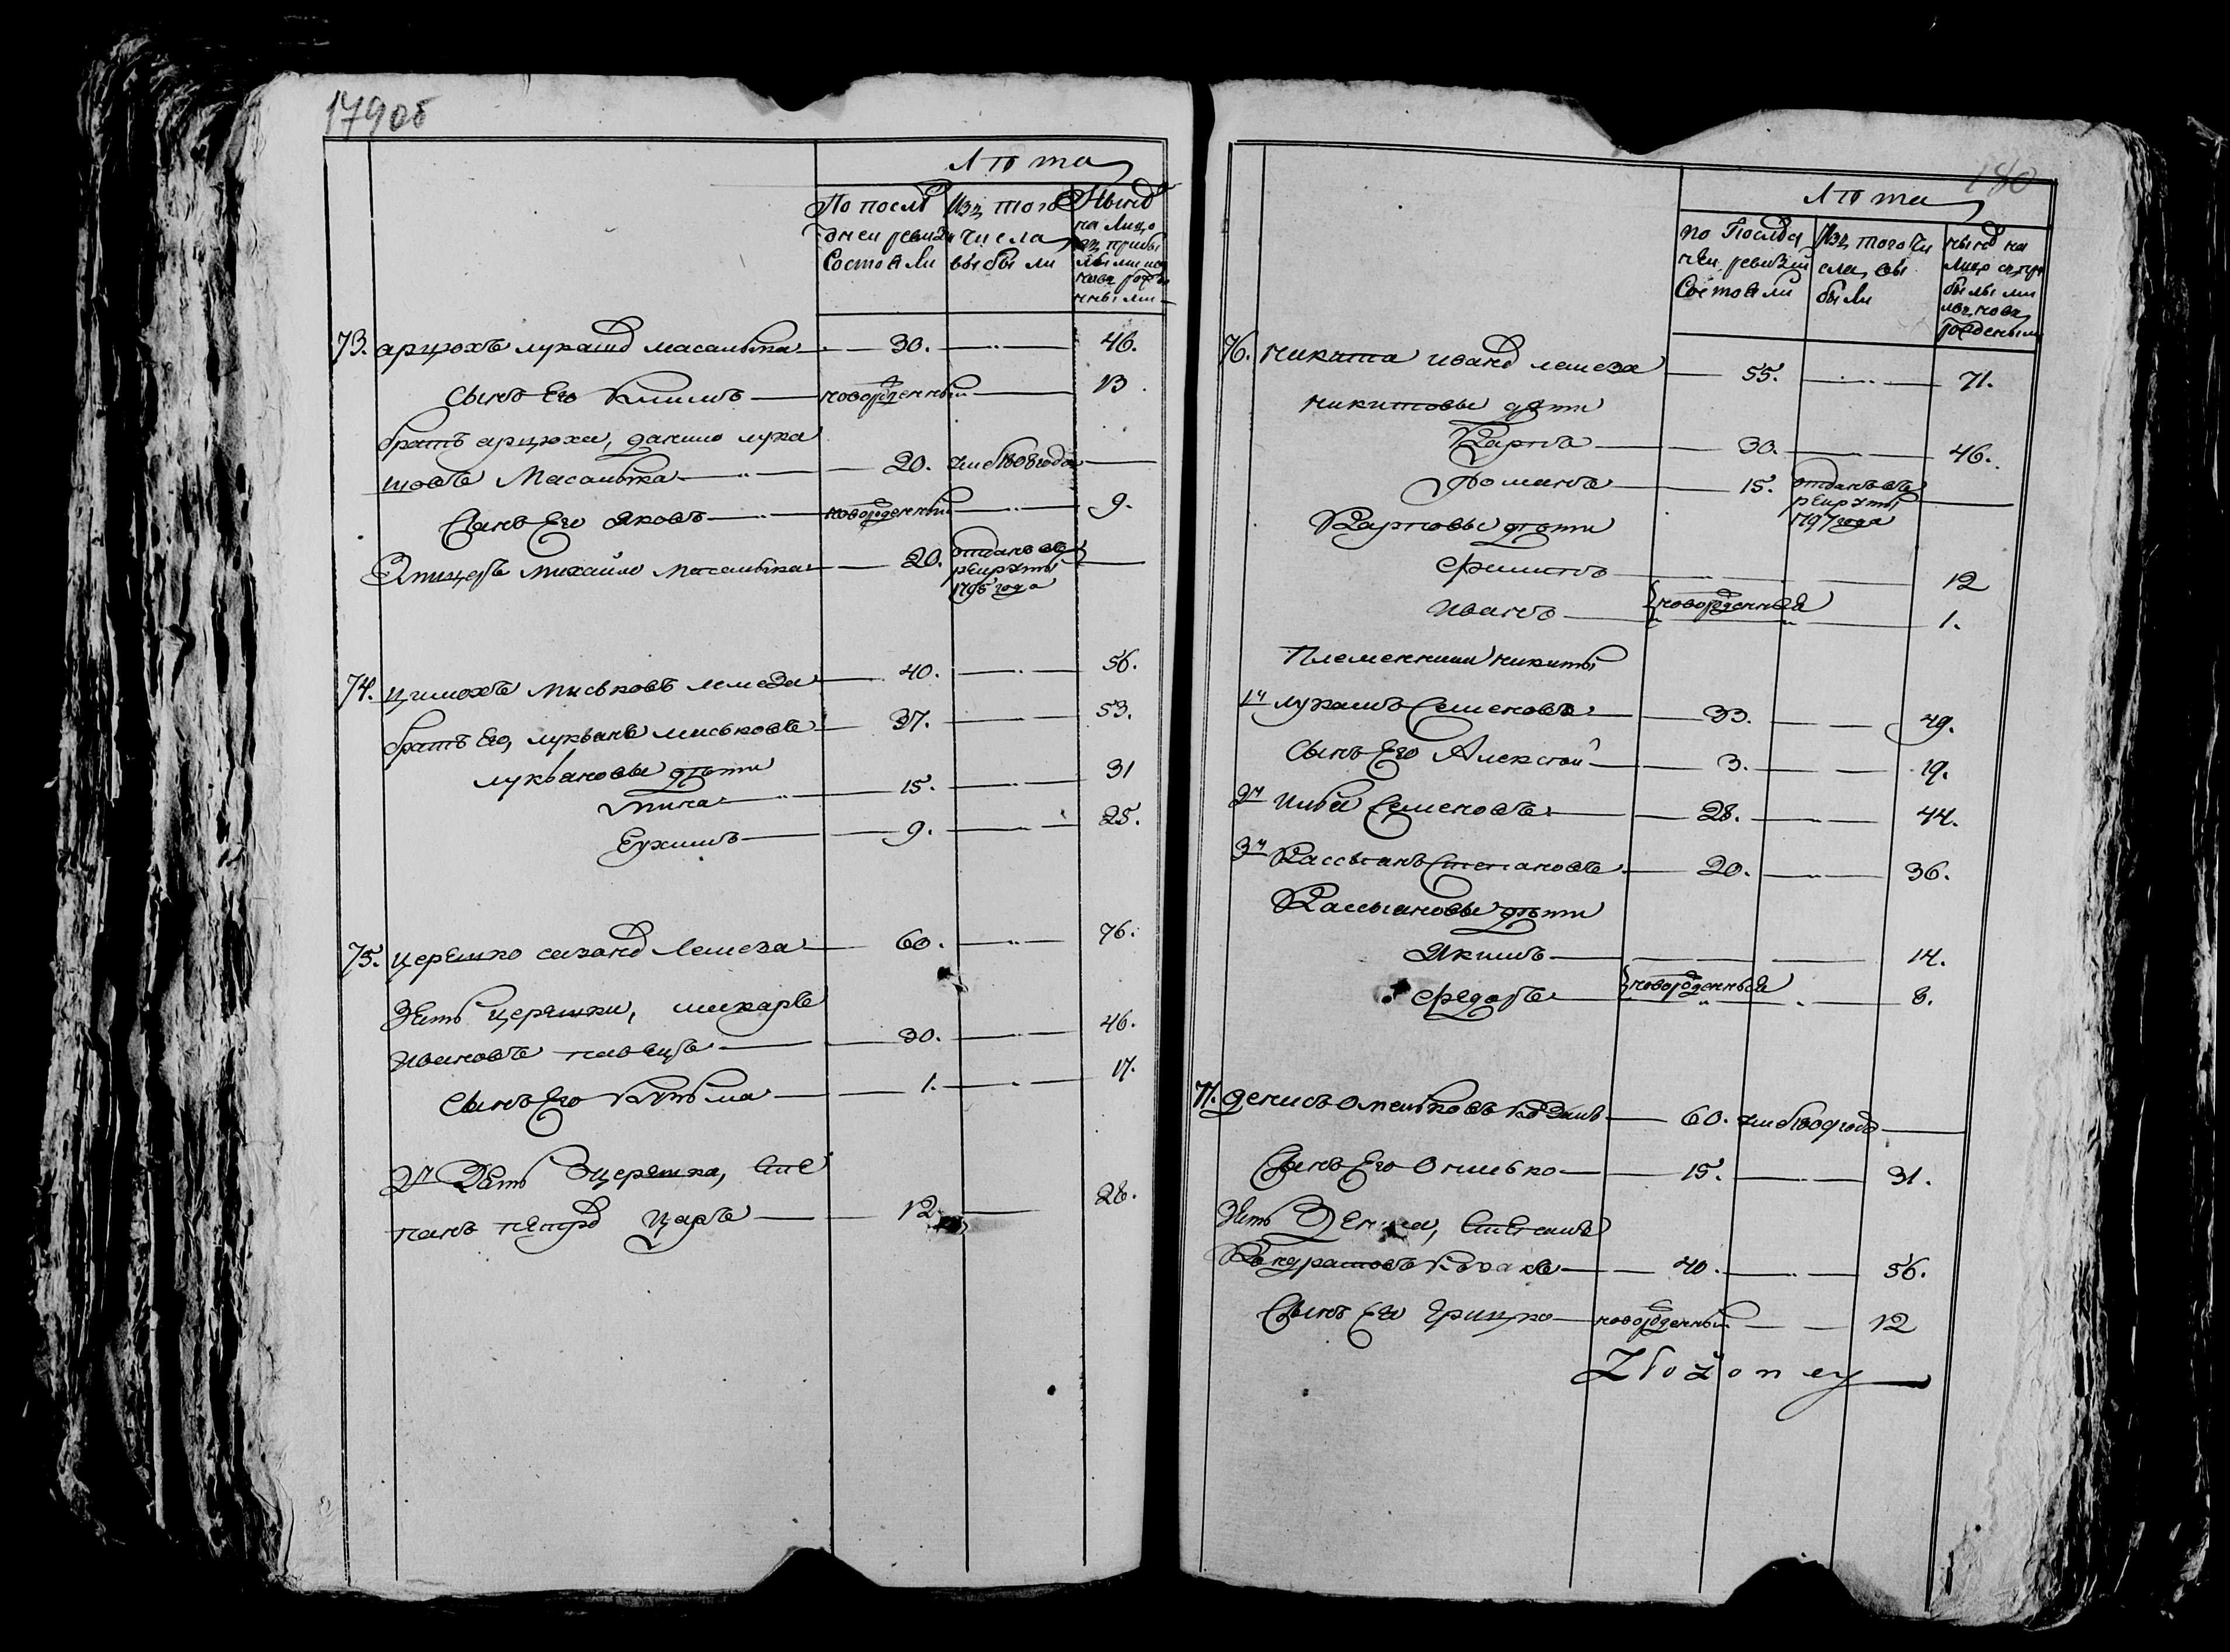 179об
Лѣта
По послѣ
дней ревизіи
Состояли
Изъ того
числа
выбыли
Нынѣ
на лицо
съ прибы
лыми и
новорожден
ными
73. арцюхъ лукашовъ масалыка 30. 46.
сынъ Его Климъ новорожденный 13.
братъ арцюха, данило лука
шовъ Масалыка 20. 1808 года
Сынъ Его Яковъ новорожденный 9.
Михайло Масалыка 20. отданъ въ
рекруты
1796 года
74. цимохъ миськовъ лемеза 40. 56.
братъ Его, лукьянъ миськовъ 37. 53.
лукьяновы дѣти
мина 15. 31
Еухимъ 9. 25.
75. церешко Лемеза 60. 76.
Зять церешки, макаръ
Ивановъ 30. 46.
сынъ Его Кузьма 1. 17.
2й Зять церешка, Сте
панъ петровъ Царъ 12. 28.
180
Лѣта
по Послѣд
ней ревизіи
Состояли
Изъ того чи
сла вы
были
нынѣ на
лицо съ при
былыми
и нова
рождеными
76. никита ивановъ лемеза 55. 71.
никитовы дѣти
Карпъ 30. 46.
Романъ 15. отданъ въ
рекруты
1797 года
Карповы дѣти
Филипъ 12
Иванъ новорожденныя 1.
Племенники никиты
1й лукашъ Семеновъ 33. 49.
Сынъ Его Алексѣй 3. 19.
2й илья Семеновъ 28. 44.
3й Кассьянъ Степановъ 20. 36.
Кассьяновы дѣти
Якимъ 14.
Федоръ новорожденныя 8.
77. денисъ Омельковъ 60. 1809 года
Сынъ Его Омелько 15. 31.
Зять Дениса,
Кондратовъ 40. 56.
Сынъ Его Грицко новорожденный 12
Złożoney